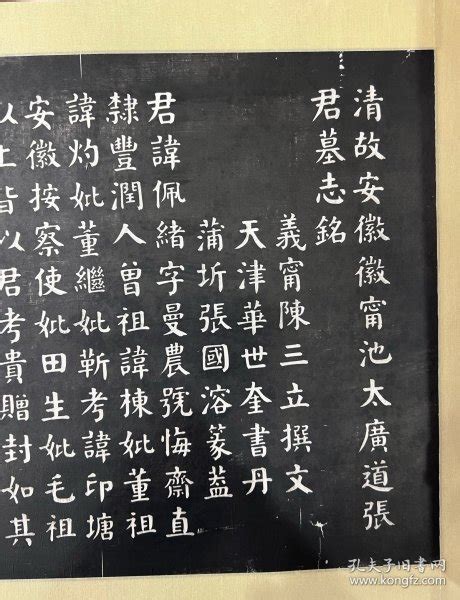 清故安徽徽甯池太廣道張
君墓志銘
義甯陳三立撰文
天津華世奎書丹
蒲圻張國溶篆葢
君諱佩緒字曼農號悔齋直
隸豐潤人曾祖諱棟妣董祖
諱灼妣董繼妣靳考諱印塘
安徽按察使妣田生妣毛祖
以上皆以君考貴贈封如其
孔夫子旧书网
www.kongfz.com